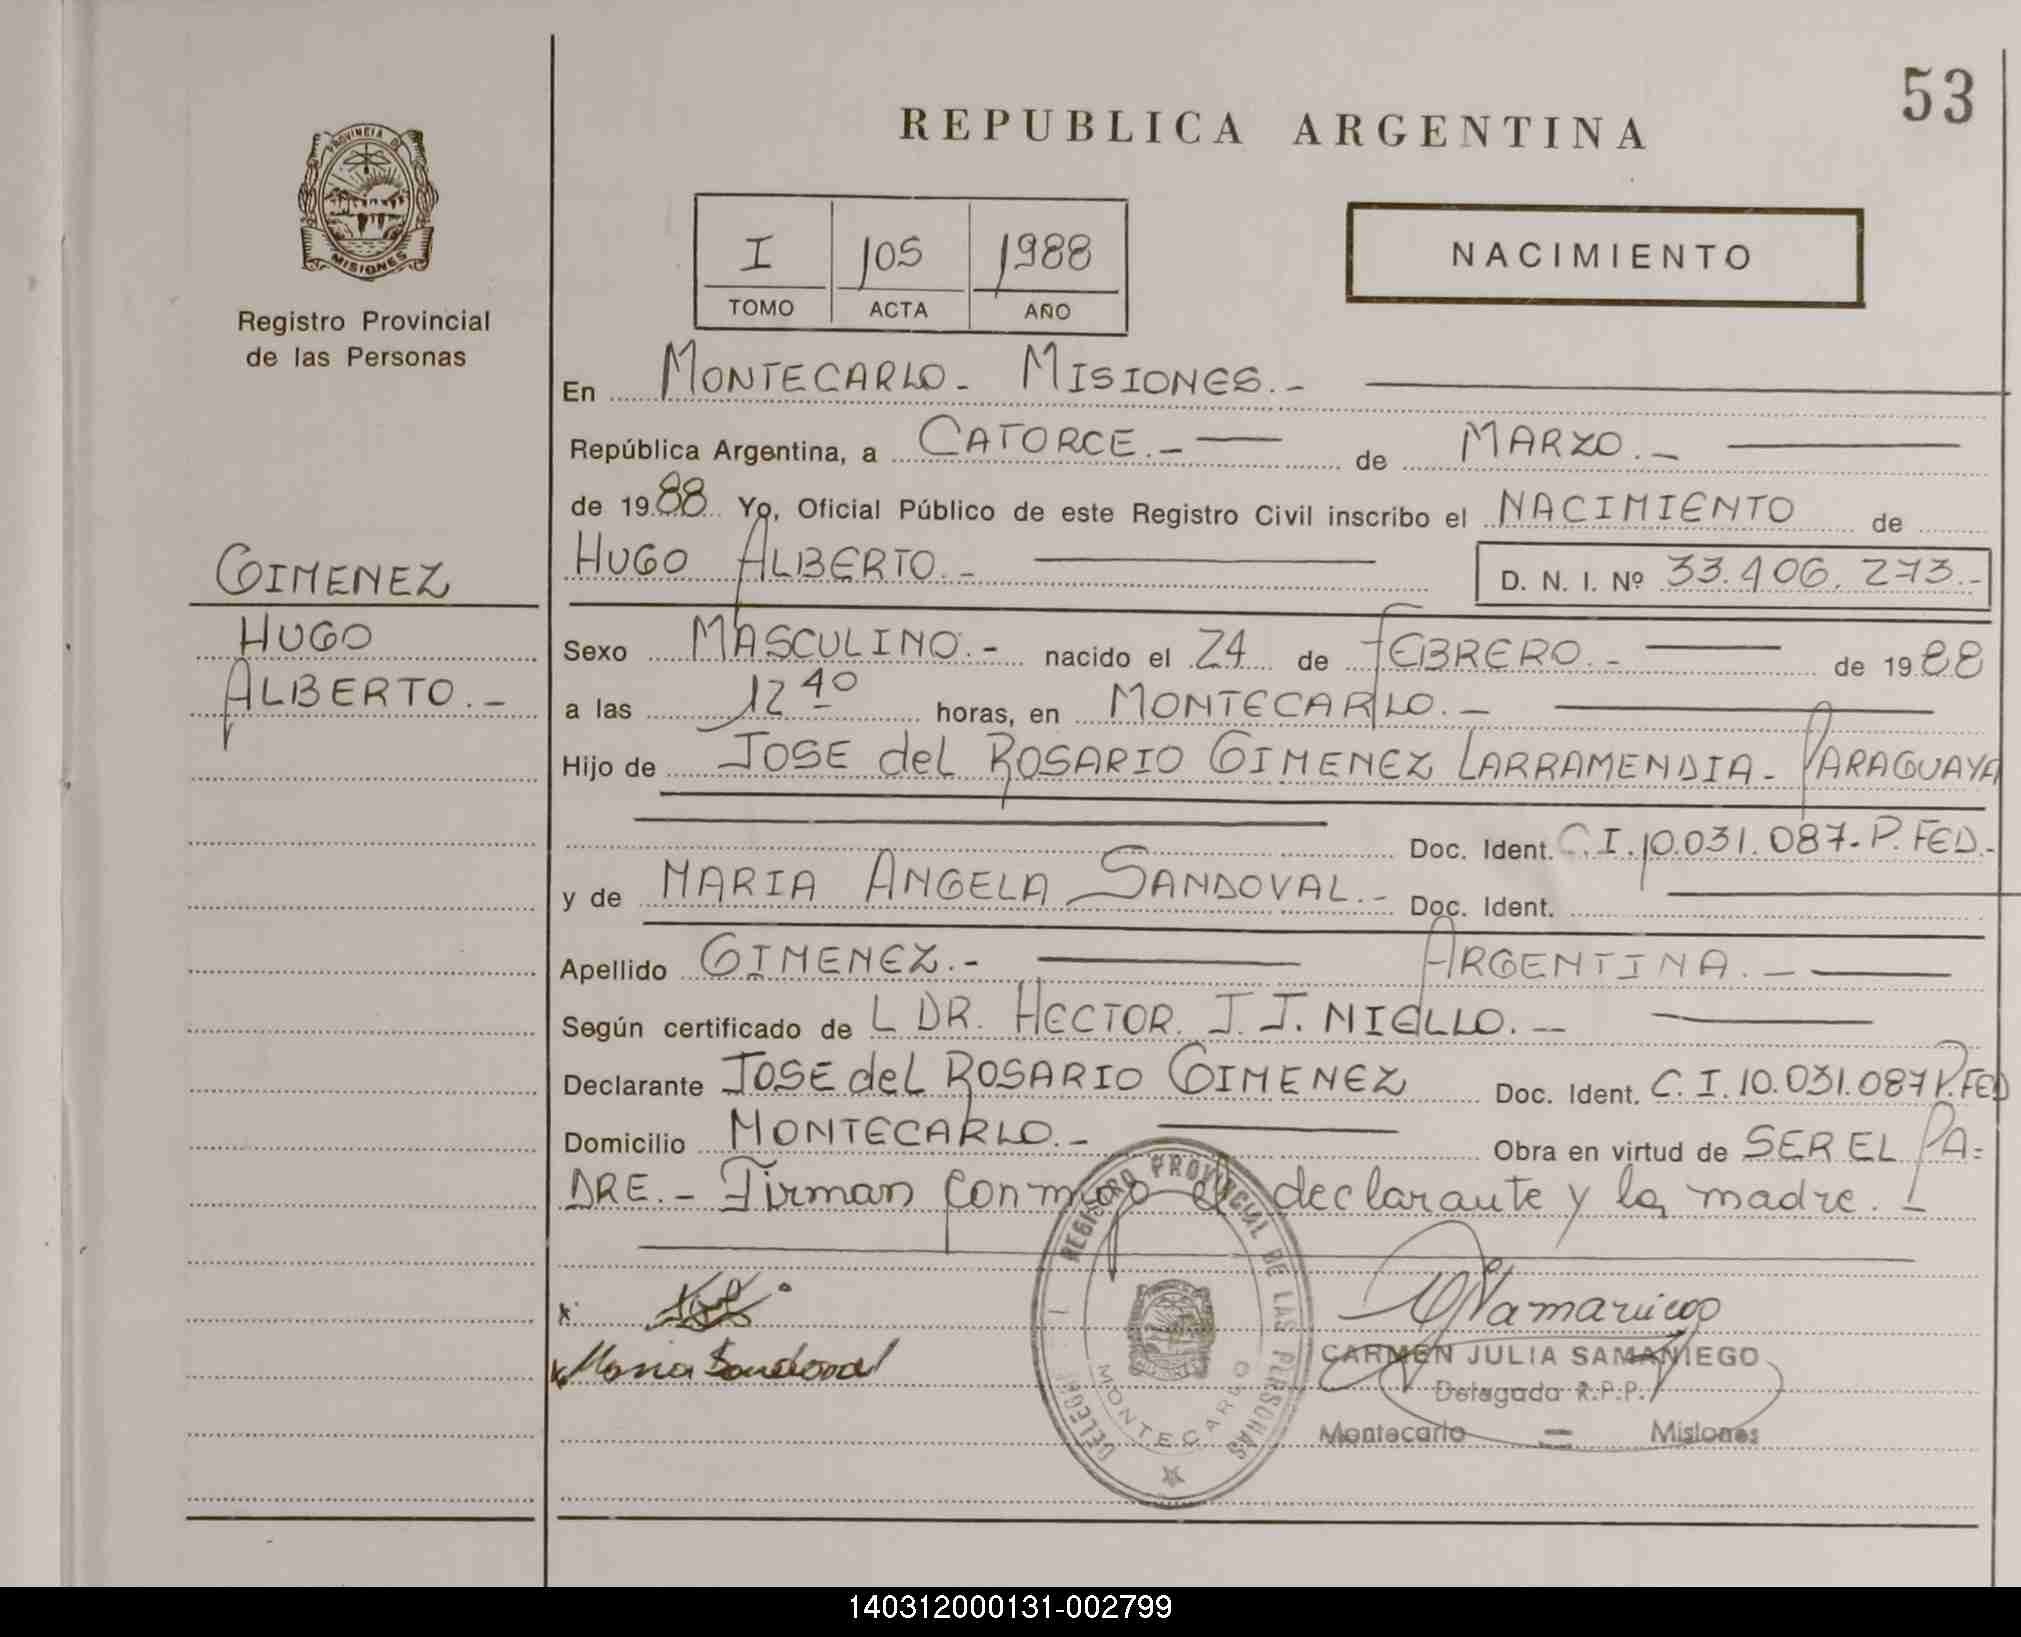 53
REPUBLICA ARGENTINA
PROVINCIA DE
MISIONES
Registro Provincial
de las Personas
I 105 1988
TOMO ACTA AÑO
NACIMIENTO
En MONTECARLO - MISIONES.-
República Argentina, a CATORCE.- de MARZO.-
de 1988 Yo, Oficial Público de este Registro Civil inscribo el NACIMIENTO de
HUGO ALBERTO.- D. N. I. Nº 33.406.273.-
GIMENEZ
HUGO
ALBERTO.-
Sexo MASCULINO.- nacido el 24 de FEBRERO.- de 1988
a las 12 40 horas, en MONTECARLO.-
Hijo de JOSE del ROSARIO GIMENEZ LARRAMENDIA - PARAGUAYA
Doc. Ident. C.I. 10.031.087.- P. FED.-
y de MARIA ANGELA SANDOVAL.- Doc. Ident.
Apellido GIMENEZ.- ARGENTINA.-
Según certificado de L DR. HECTOR J. J. NIELLO.-
Declarante JOSE del ROSARIO GIMENEZ Doc. Ident. C. I. 10.031.087 P. FED
Domicilio MONTECARLO.- Obra en virtud de SER EL PA=
DRE.- Firman conmigo el declarante y la madre.-
x
x Maria Sandoval
REGISTRO PROVINCIAL DE LAS PERSONAS
MONTECARLO
CARMEN JULIA SAMANIEGO
Delegada R.P.P.
Montecarlo - Misiones
140312000131-002799